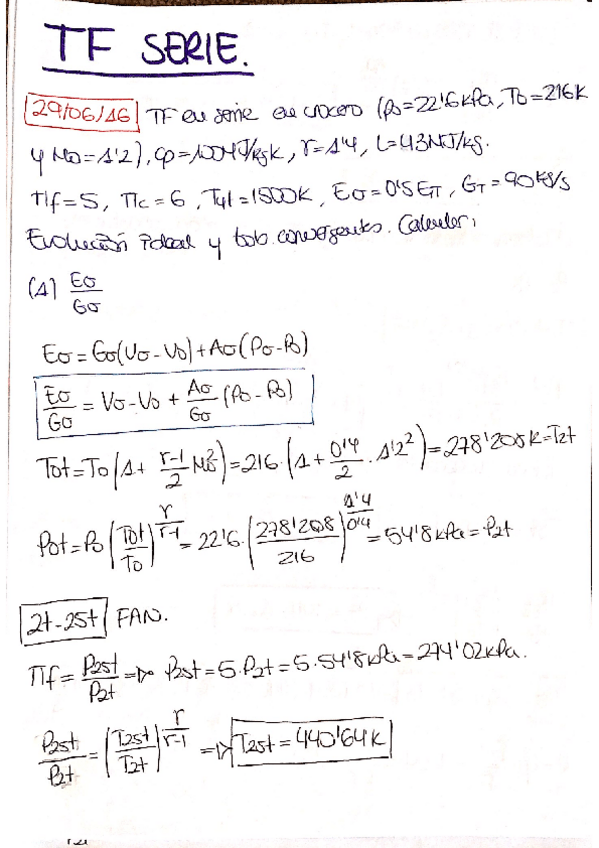 TF SERIE.
29/06/16 TF en serie en crucero (p0=22'6kPa, T0=216K
y M0=1'2), cp=1004J/kgK, γ=1'4, L=43MJ/kg.
πf=5, πc=6, T4t=1500K, Eσ=0'5ET, GT=90kg/s
Evolución ideal y tob. convergentes. Calcular:
(1) Eσ/Gσ
Eσ=Gσ(Vσ-V0)+Aσ(Pσ-P0)
Eσ/Gσ = Vσ-V0 + Aσ/Gσ (Pσ-P0)
T0t=T0(1+ γ-1/2 M0²)=216·(1+ 0'4/2 · 1'2²)=278'208K=T2t
P0t=P0(T0t/T0)^γ/γ-1=22'6·(278'208/216)^1'4/0'4=54'8kPa=P2t
2t-25t FAN.
πf= P25t/P2t => P25t=5·P2t=5·54'8kPa=274'02kPa.
P25t/P2t=(T25t/T2t)^γ/γ-1 => T25t=440'64K